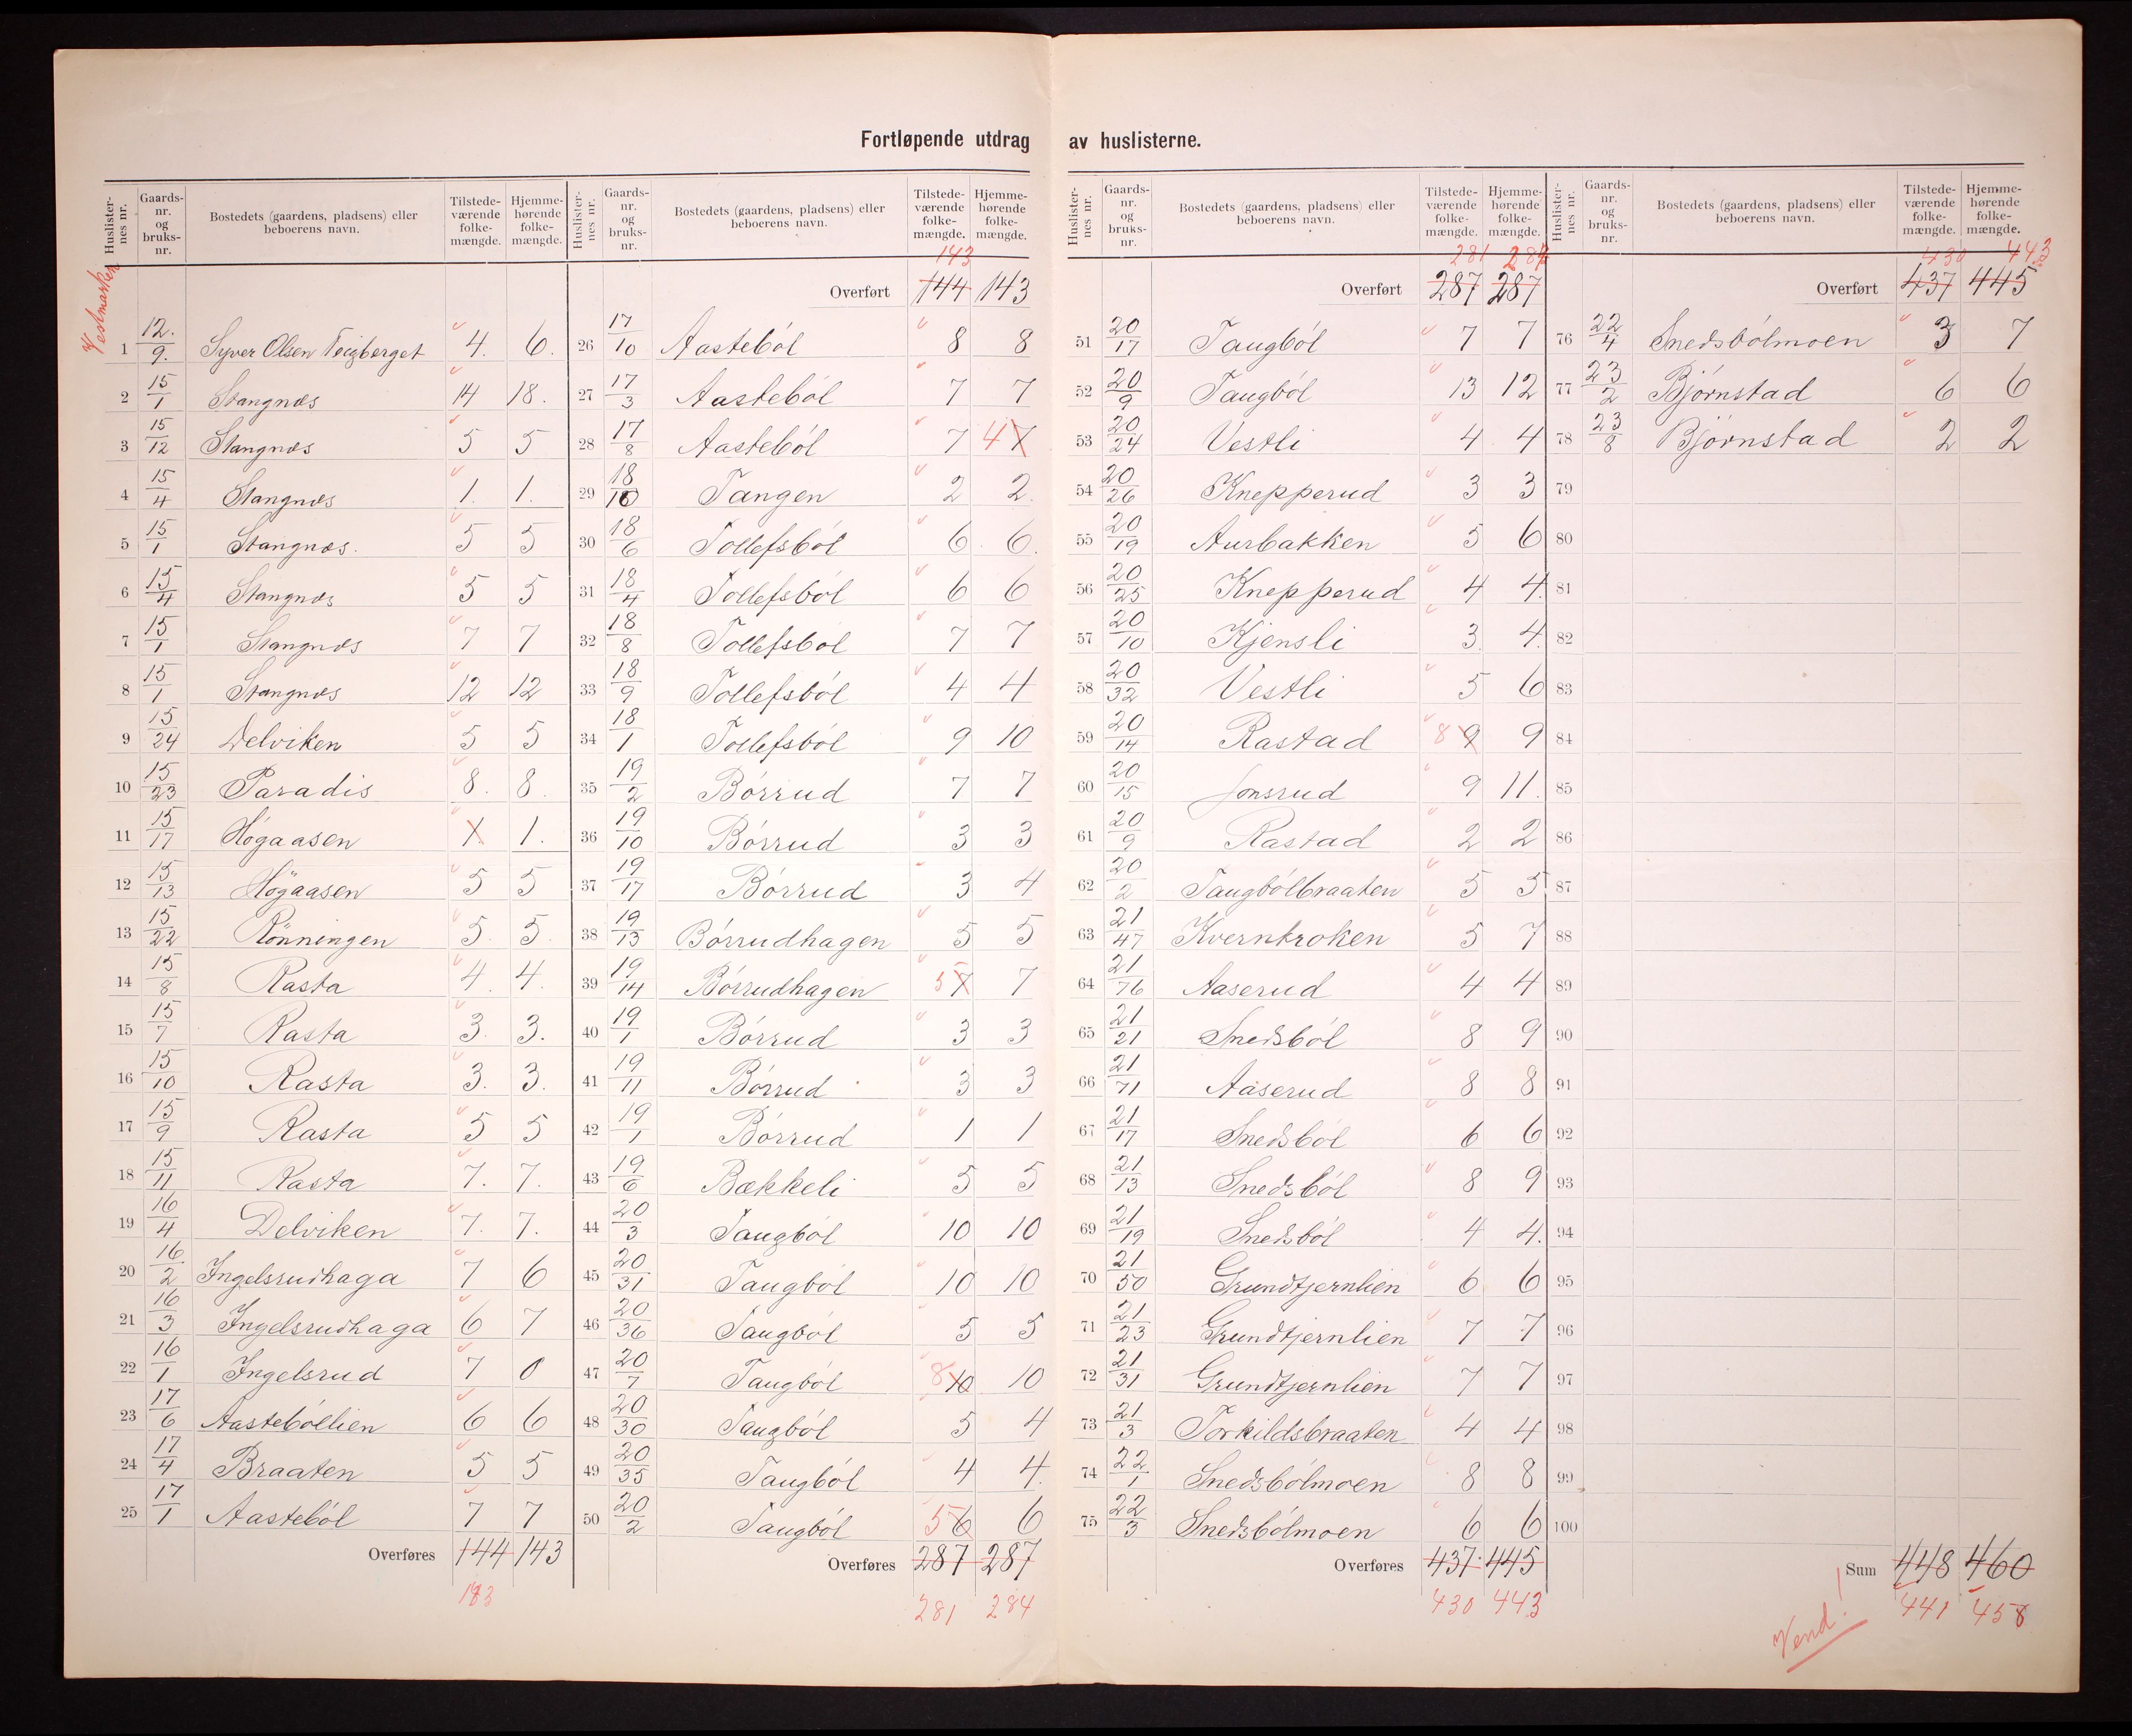 Fortløpende utdrag av huslisterne.
Huslister-nes nr. | Gaards-nr. og bruks-nr. | Bostedets (gaardens, pladsens) eller beboerens navn. | Tilstede-værende folke-mængde. | Hjemme-hørende folke-mængde.
Vestmarken
1 12./9. Syver Olsen Teigberget 4. 6.
2 15/1 Stangnæs 14 18.
3 15/12 Stangnæs 5 5
4 15/4 Stangnæs 1. 1.
5 15/1 Stangnæs. 5 5
6 15/4 Stangnæs 5 5
7 15/1 Stangnæs 7 7
8 15/1 Stangnæs 12 12
9 15/24 Delviken 5 5
10 15/23 Paradis 8. 8.
11 15/17 Högaasen 1 1.
12 15/13 Högaasen 5 5
13 15/22 Rönningen 5. 5.
14 15/8 Rasta 4. 4.
15 15/7 Rasta 3. 3.
16 15/10 Rasta 3. 3.
17 15/9 Rasta 5 5
18 15/11 Rasta 7. 7.
19 16/4 Delviken 7. 7.
20 16/2 Ingelsrudhaga 7 6
21 16/3 Ingelsrudhaga 6 7
22 16/1 Ingelsrud 7 0
23 17/6 Aastebóllien 6 6
24 17/4 Braaten 5 5
25 17/1 Aasteból 7 7
Overføres 144 143
143
Huslister-nes nr. | Gaards-nr. og bruks-nr. | Bostedets (gaardens, pladsens) eller beboerens navn. | Tilstede-værende folke-mængde. | Hjemme-hørende folke-mængde.
143
Overført 144 143
26 17/10 Aasteból 8 8
27 17/3 Aasteból 7 7
28 17/8 Aasteból 7 4 7
29 18/10 Tangen 2 2.
30 18/6 Tollefsból 6. 6.
31 18/4 Tollefsból 6 6
32 18/8 Tollefsból 7 7
33 18/9 Tollefsból 4 4
34 18/1 Tollefsból 9 10
35 19/2 Börrud 7 7
36 19/10 Börrud 3 3
37 19/17 Börrud 3 4
38 19/13 Börrudhagen 5 5
39 19/14 Börrudhagen 5 7 7
40 19/1 Börrud 3 3
41 19/11 Börrud 3 3
42 19/1 Börrud 1 1
43 19/6 Bækkeli 5 5
44 20/3 Taugból 10 10
45 20/31 Taugból 10 10
46 20/36 Taugból 5 5
47 20/7 Taugból 8 10 10
48 20/30 Taugból 5 4
49 20/35 Taugból 4 4.
50 20/2 Taugból 5 6 6
Overføres 287 287
281 284
Huslister-nes nr. | Gaards-nr. og bruks-nr. | Bostedets (gaardens, pladsens) eller beboerens navn. | Tilstede-værende folke-mængde. | Hjemme-hørende folke-mængde.
281 284
Overført 287 287
51 20/17 Taugból 7 7
52 20/9 Taugból 13 12
53 20/24 Vestli 4 4
54 20/26 Knepperud 3 3
55 20/19 Aurbakken 5 6
56 20/25 Knepperud 4 4.
57 20/10 Kjensli 3. 4.
58 20/32 Vestli 5 6
59 20/14 Rastad 8 9 9
60 20/15 Jonsrud 9 11.
61 20/9 Rastad 2 2
62 20/2 Taugbólbraaten 5 5
63 21/47 Kvernkroken 5 7
64 21/76 Aaserud 4 4
65 21/21 Snedsból 8 9
66 21/71 Aaserud 8 8
67 21/17 Snedsból 6 6
68 21/13 Snedsból 8 9
69 21/19 Snedsból 4 4.
70 21/50 Grundtjernlien 6 6
71 21/23 Grundtjernlien 7 7
72 21/31 Grundtjernlien 7 7
73 21/3 Torkildsbraaten 4 4
74 22/1 Snedsbólmoen 8 8
75 22/3 Snedsbólmoen 6 6
Overføres 437 445
430 443
Huslister-nes nr. | Gaards-nr. og bruks-nr. | Bostedets (gaardens, pladsens) eller beboerens navn. | Tilstede-værende folke-mængde. | Hjemme-hørende folke-mængde.
430 443
Overført 437 445
76 22/4 Snedsbólmoen 3 7
77 23/2 Björnstad 6 6
78 23/8 Björnstad 2 2
79
80
81
82
83
84
85
86
87
88
89
90
91
92
93
94
95
96
97
98
99
100
Sum 448 460
441 458
Vend!